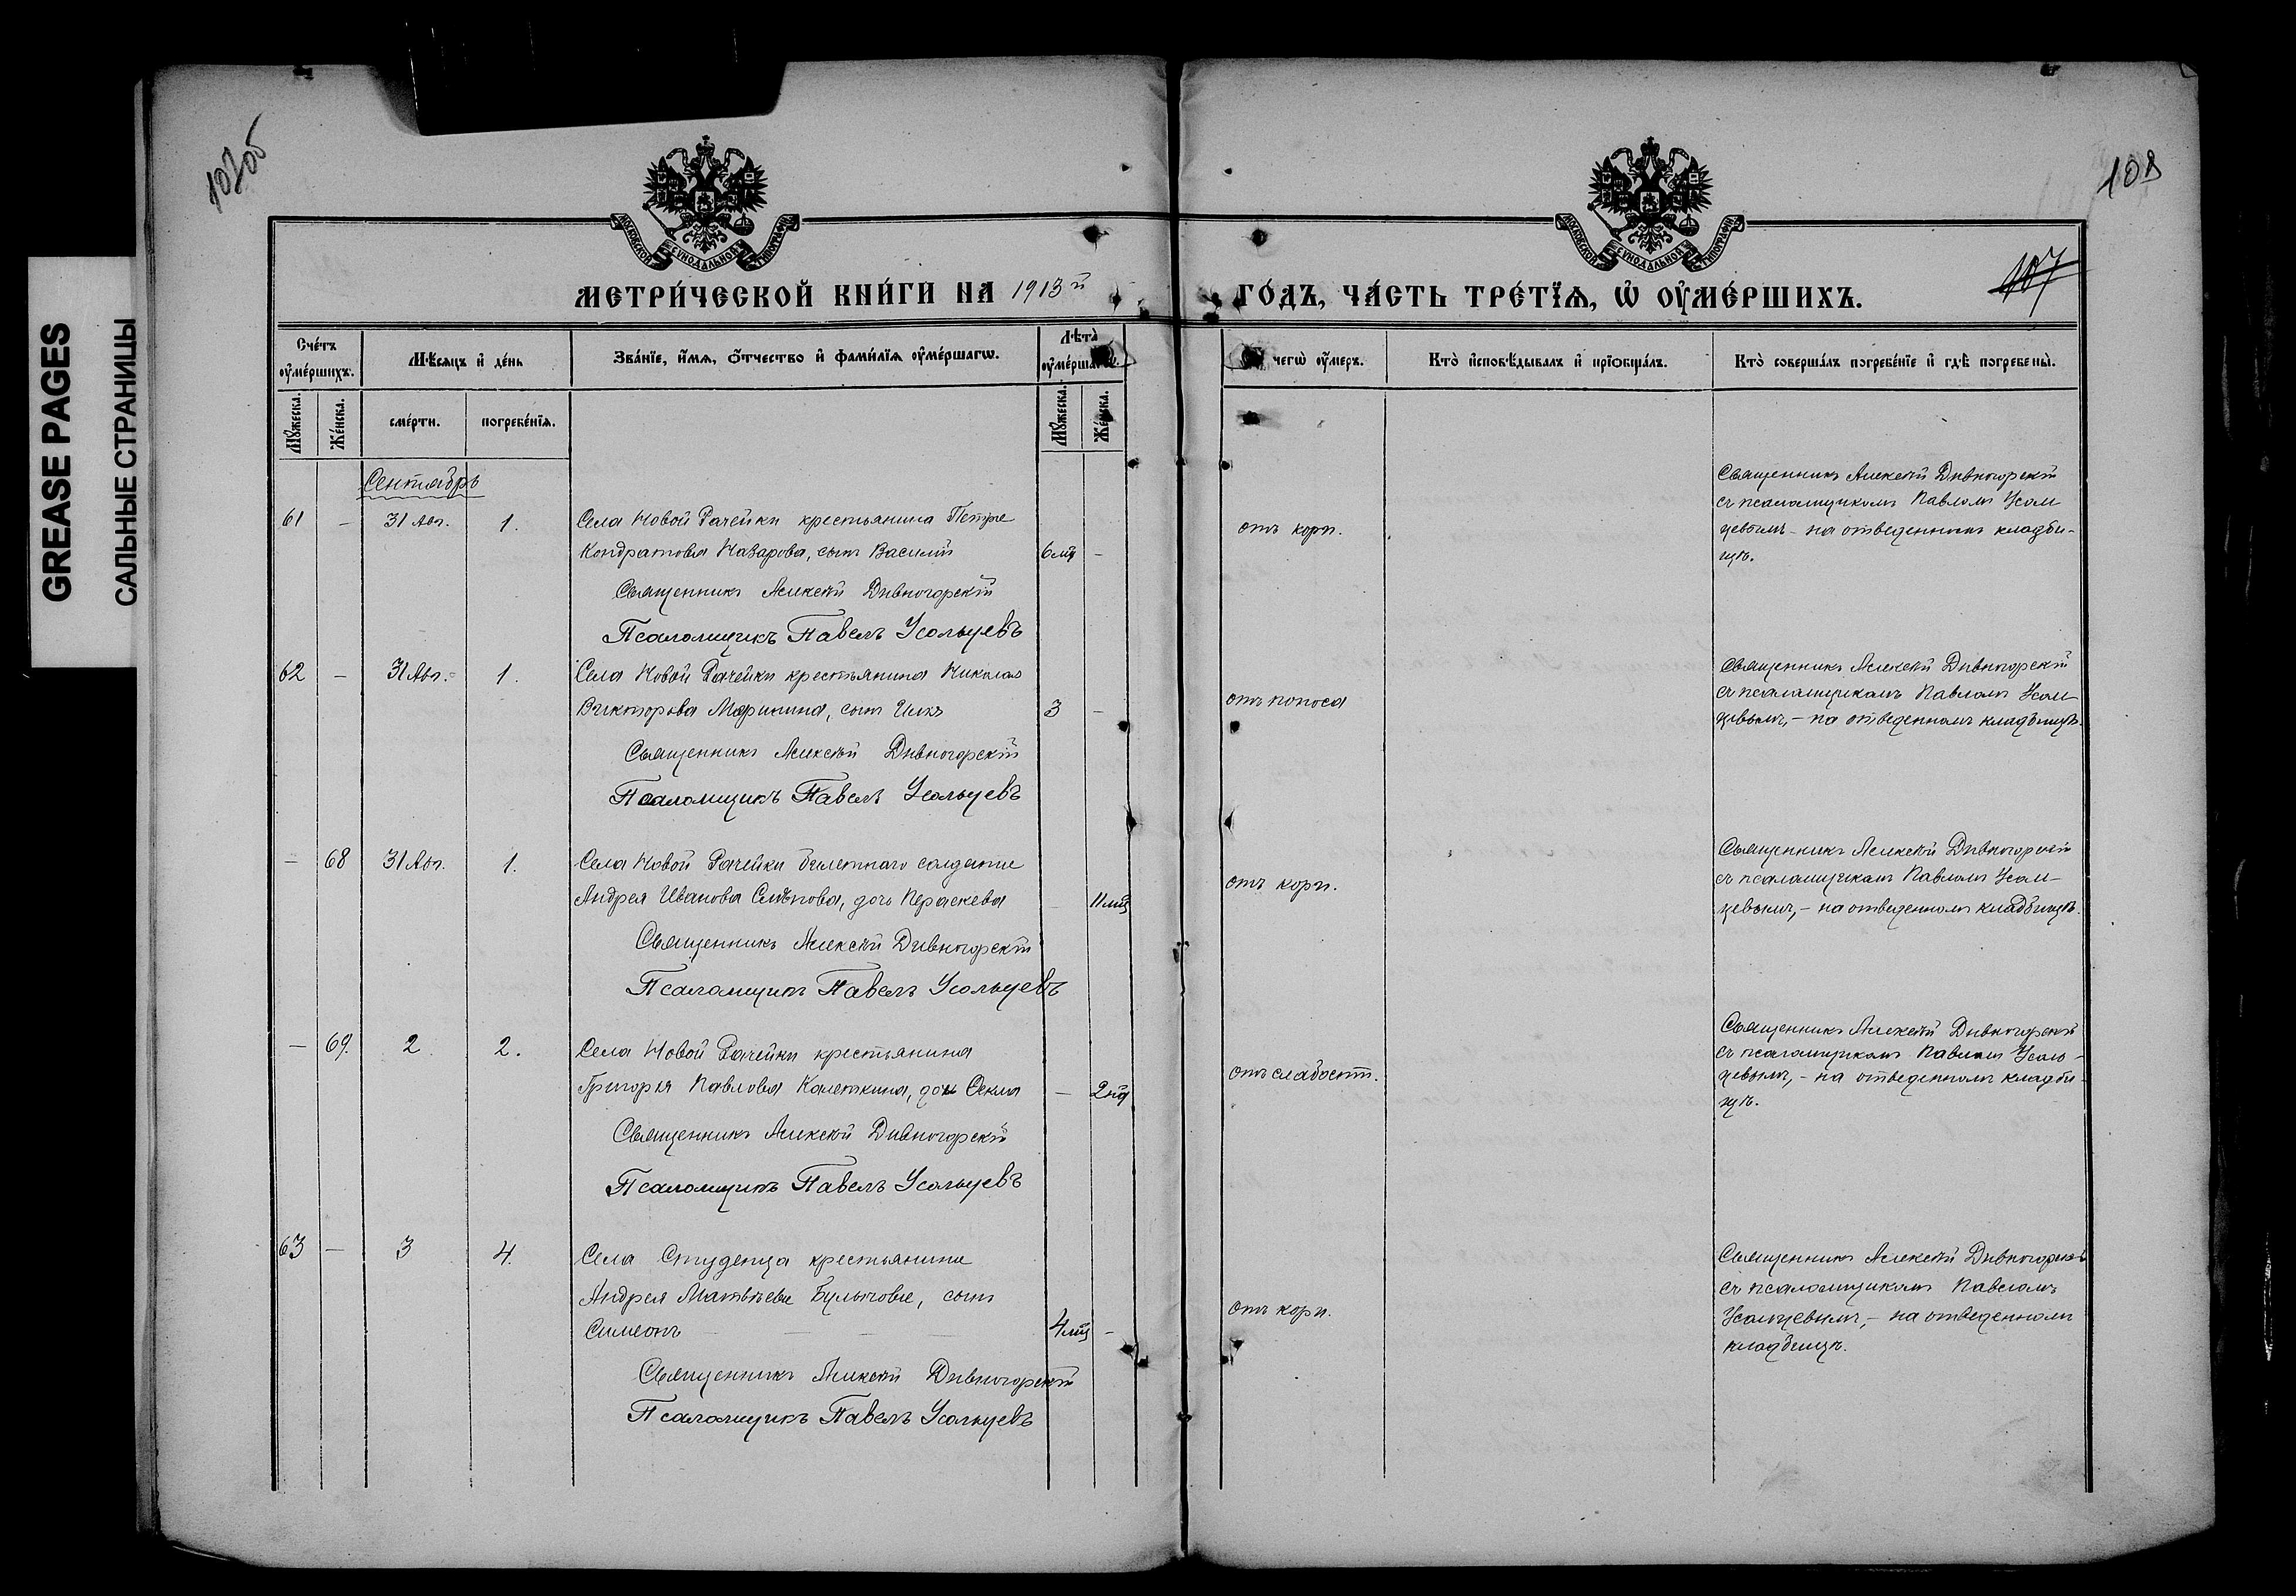 GREASE PAGES
САЛЬНЫЕ СТРАНИЦЫ
108
107
МОСКОВСКОЙ СѴНОДАЛЬНОЙ ТИПОГРАФІИ
МОСКОВСКОЙ СѴНОДАЛЬНОЙ ТИПОГРАФІИ
МЕТРИ́ЧЕСКОЙ КНИ́ГИ НА 1913й
ГО́ДЪ, ЧА́СТЬ ТРЕ́ТЇѦ, Ѡ҆ ОУ҆МЕ́РШИХЪ.
Сче́тъ оу҆ме́ршихъ.
Мѣ́сѧцъ и҆ де́нь
Зва́нїе, и҆́мѧ, ѻ҆́тчество и҆ фами́лїѧ оу҆ме́ршагѡ.
Лѣ́та̀ оу҆ме́ршагѡ.
Мꙋ́жеска.
Же́нска.
сме́рти.
погребе́нїѧ.
Мꙋ́жеска.
Же́нска.
чегѡ̀ оу҆́меръ.
Кто̀ и҆сповѣ́дывалъ и҆ прїѡбща́лъ.
Кто̀ соверша́лъ погребе́нїе и҆ гдѣ̀ погребены̀.
Сентябрь
61 – 31 Авг. 1. Села Новой Рачейки крестьянина Петра
Кондратова Назарова, сынъ Василій 6 мц –
Священникъ Алексѣй Дивногорскій
Псаломщикъ Павелъ Усольцевъ
отъ кори.
Священникъ Алексѣй Дивногорскій
съ псаломщикомъ Павломъ Усоль
цевымъ – на отведенномъ кладби-
щѣ.
62 – 31 Авг. 1. Села Новой Рачейки крестьянина Николая
Викторова Маринина, сынъ Илія 3 –
Священникъ Алексѣй Дивногорскій
Псаломщикъ Павелъ Усольцевъ
отъ поноса
Священникъ Алексѣй Дивногорскій
съ псаломщикомъ Павломъ Усоль
цевымъ, – на отведенномъ кладбищѣ.
– 68 31 Авг. 1. Села Новой Рачейки билетнаго солдата
Андрея Иванова Слѣпова, дочь Параскева – 11 мц
Священникъ Алексѣй Дивногорскій
Псаломщикъ Павелъ Усольцевъ
отъ кори.
Священникъ Алексѣй Дивногорскій
съ псаломщикомъ Павломъ Усоль-
цевымъ, – на отведенномъ кладбищѣ.
– 69. 2. 2. Села Новой Рачейки крестьянина
Григорія Павлова Калеткина, дочь Ѳекла – 2 нд
Священникъ Алексѣй Дивногорскій
Псаломщикъ Павелъ Усольцевъ
отъ слабости.
Священникъ Алексѣй Дивногорскій
съ псаломщикомъ Павломъ Усоль-
цевымъ, – на отведенномъ кладби-
щѣ.
63 – 3 4. Села Студенца крестьянина
Андрея Матвѣева Булычова, сынъ
Симеонъ 4 мц –
Священникъ Алексѣй Дивногорскій
Псаломщикъ Павелъ Усольцевъ
отъ кори.
Священникъ Алексѣй Дивногорскій
съ псаломщикомъ Павломъ
Усольцевымъ, – на отведенномъ
кладбищѣ.